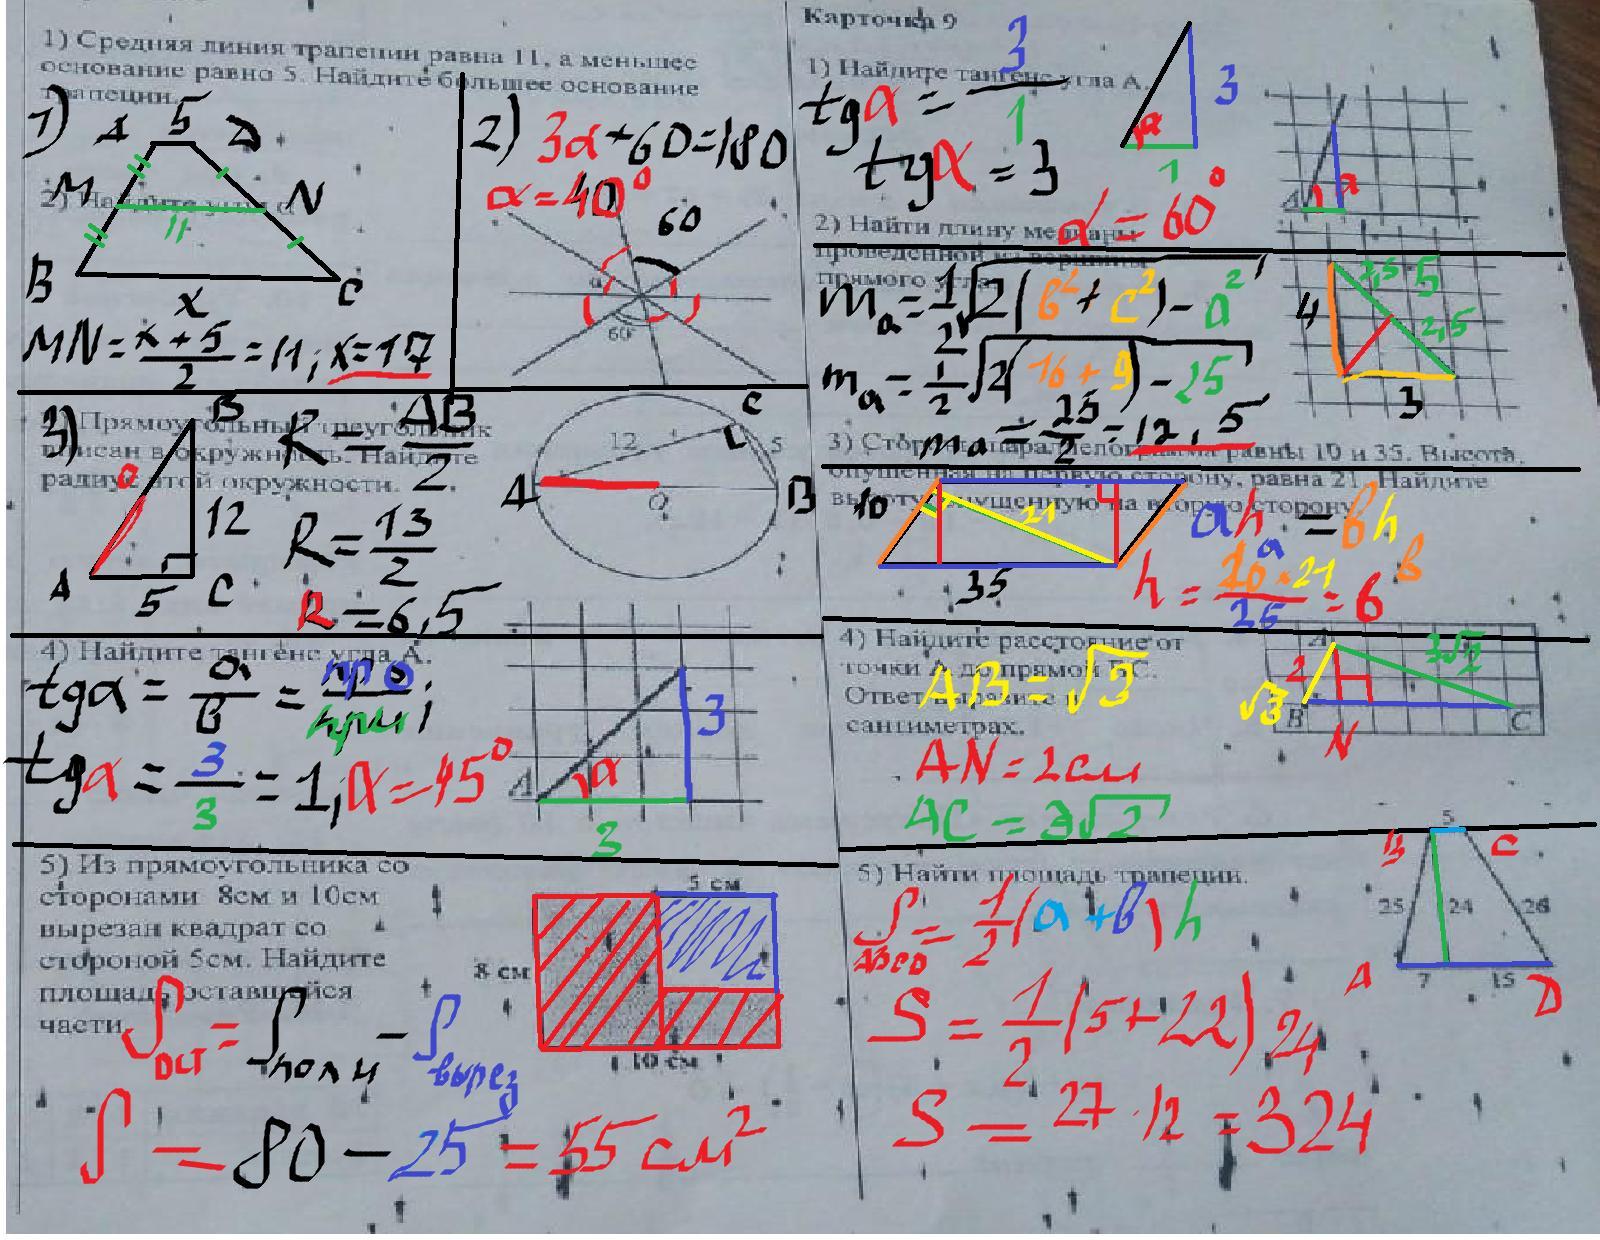 1) Средняя линия трапеции равна 11, а меньшее
основание равно 5. Найдите большее основание
трапеции.
1)
5
M
N
11
B
x
C
MN = x+5/2 = 11; x=17
2)
3α+60=180
α=40°
60
60
3)
Прямоугольный треугольник
вписан в окружность. Найдите
радиус этой окружности.
B
12
A
5
C
R = AB/2
R = 13/2
R = 6,5
12
C
5
A
O
B
4) Найдите тангенс угла A.
tgα = a/b =
tgα = 3/3 = 1, α=45°
A
α
3
3
5) Из прямоугольника со
сторонами 8см и 10см
вырезан квадрат со
стороной 5см. Найдите
площадь оставшейся
части.
5 см
8 см
10 см
S = 80 - 25 = 55 см²
Карточка 9
1) Найдите тангенс угла A.
tgα = 3/1
tgα = 3
α = 60°
α
3
1
A
α
2) Найти длину медианы
проведенной из вершины
прямого угла
mₐ = 1/2 √2(b²+c²)-a²
mₐ = 1/2 √2(16+9)-25
mₐ = 25/2 = 12,5
4
2,5
5
2,5
3
3) Стороны параллелограмма равны 10 и 35. Высота,
опущенная на первую сторону, равна 21. Найдите
высоту, опущенную на вторую сторону
10
21
35
4) Найдите расстояние от
точки A до прямой BC.
сантиметрах.
AB = √3
AN = 2см
AC = 3√2
A
2
3√2
√3
B
N
C
5) Найти площадь трапеции.
S = 1/2 (a+b) h
S = 1/2 (5+22) 24
S = 27·12 = 324
5
B
C
25
24
26
A
7
15
D